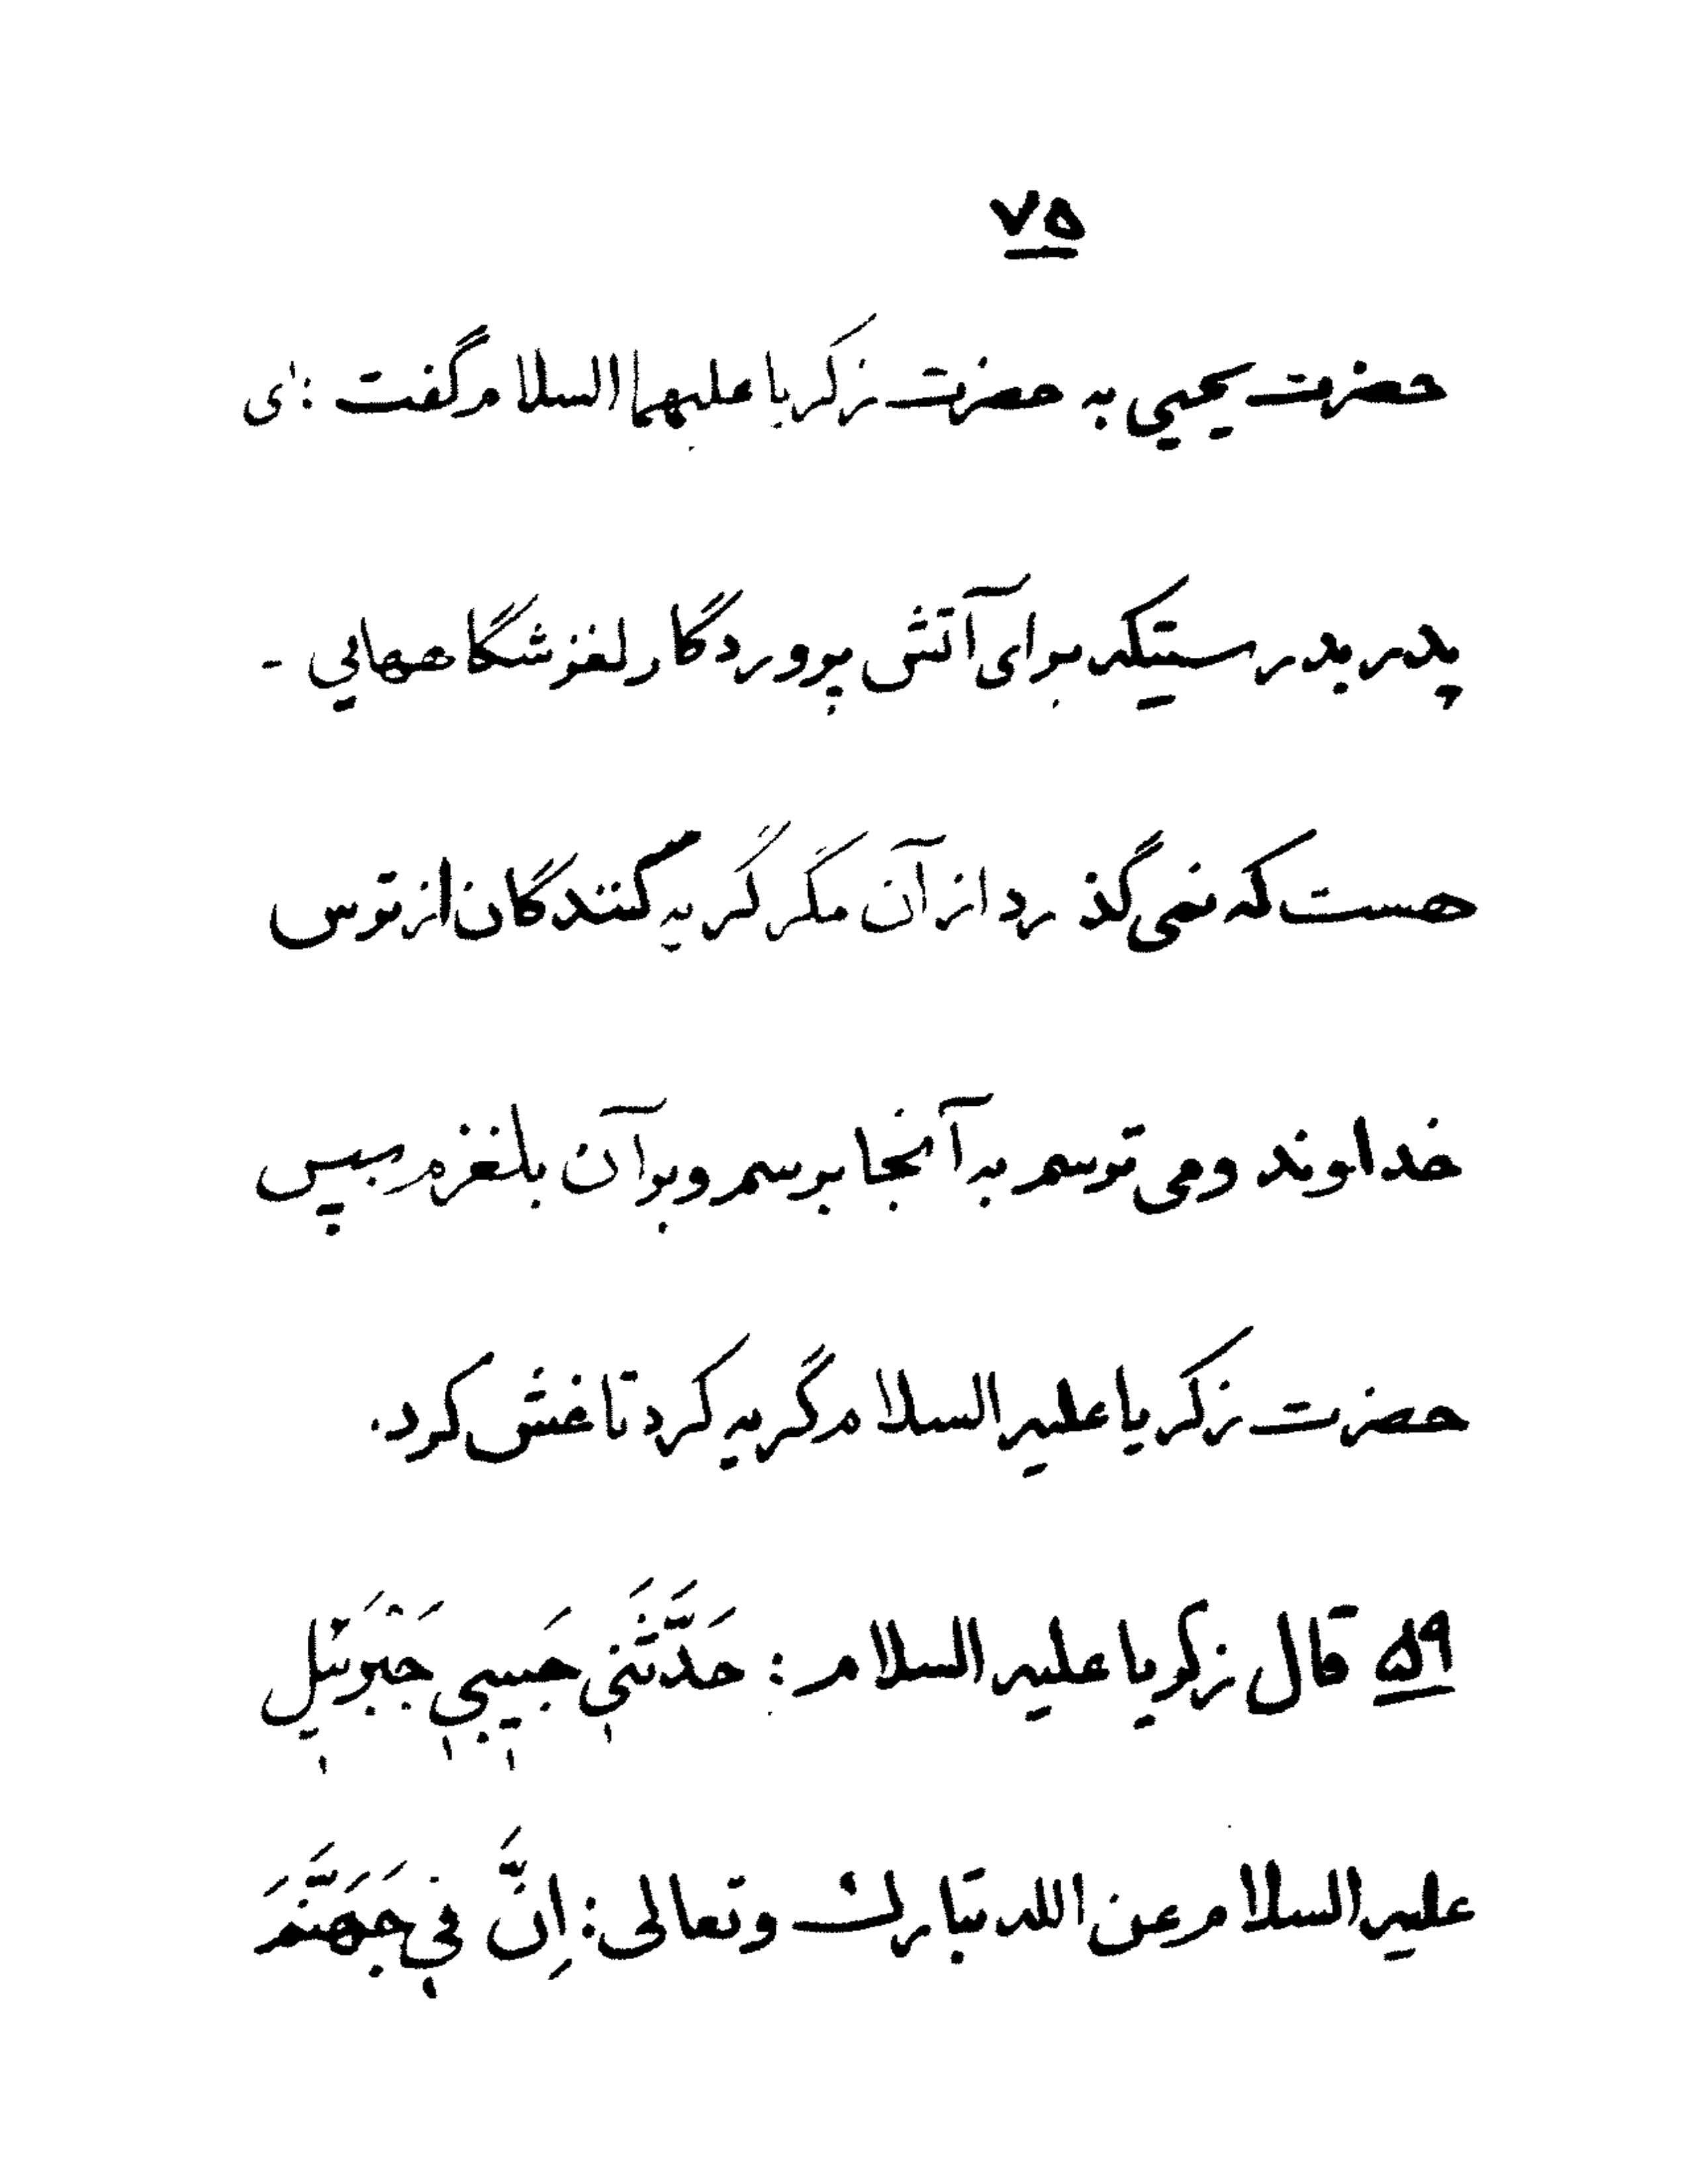 ۷۵
حضرت یحیی به حضرت زکریا علیهما السلام گفت : ای
پدر بدرستیکه برای آتش پروردگار لغزشگاههایی -
هست که نمی گذرد از آن مگر گریه کنندگان از ترس
خداوند و می ترسم به آنجا برسم و بر آن بلغزم سپس
حضرت زکریا علیه السلام گریه کرد تا غش کرد.
۵۹ قال زکریا علیه السلام : حَدَّثَنِي حَبِيبِي جَبْرَئِيل
علیه السلام عن الله تبارك وتعالى : اِنَّ فِي جَهَنَّمَ